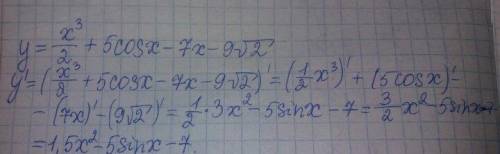 y = x³/2 + 5cosx - 7x - 9√2
y' = (x³/2 + 5cosx - 7x - 9√2)' = (1/2 x³)' + (5cosx)' -
- (7x)' - (9√2)' = 1/2 · 3x² - 5sinx - 7 = 3/2 x² - 5sinx -
= 1,5x² - 5sinx - 7.